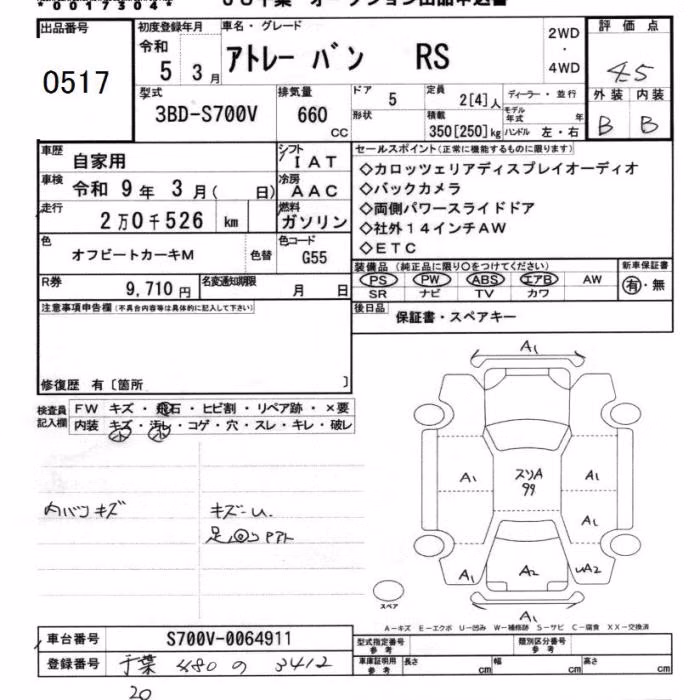 * 00173304 *
出品番号
0517
初度登録年月
令和
5 3月
車名・グレード
アトレー バン RS
2WD
・
4WD
評価点
4.5
外装 内装
B B
型式
3BD-S700V
排気量
660
cc
ドア
5
形状
定員
2[4]人
積載
350[250]kg
ディーラー・並行
モデル年式 年
ハンドル 左・右
車歴
自家用
シフト
IAT
車検
令和 9年 3月( 日)
冷房
AAC
走行
2万0千526 km
燃料
ガソリン
色
オフビートカーキM
色替
色コード
G55
R券
9,710 円
名変通知期限
月 日
セールスポイント(正常に機能するものに限ります)
◇カロッツェリアディスプレイオーディオ
◇バックカメラ
◇両側パワースライドドア
◇社外14インチAW
◇ETC
装備品 (純正品に限り○をつけてください)
PS PW ABS エアB AW
SR ナビ TV カワ
新車保証書
有・無
後日品
保証書・スペアキー
注意事項申告欄(不具合内容等は具体的に記入して下さい)
修復歴 有〔箇所 〕
検査員
記入欄
FW キズ・飛石・ヒビ割・リペア跡・×要
内装 キズ・汚レ・コゲ・穴・スレ・キレ・破レ
小 小
内バンキズ
キズ-U.
A1
A1
スソA
99
A1
A1
A1
A2
UA2
A1
スペア
A-キズ E-エクボ U-凹み W-補修跡 S-サビ C-腐食 XX-交換済
車台番号
S700V-0064911
登録番号
千葉 480 の 3412
型式指定番号
参考
類別区分番号
参考
車庫証明用
参考
長さ cm
幅 cm
高さ cm
20